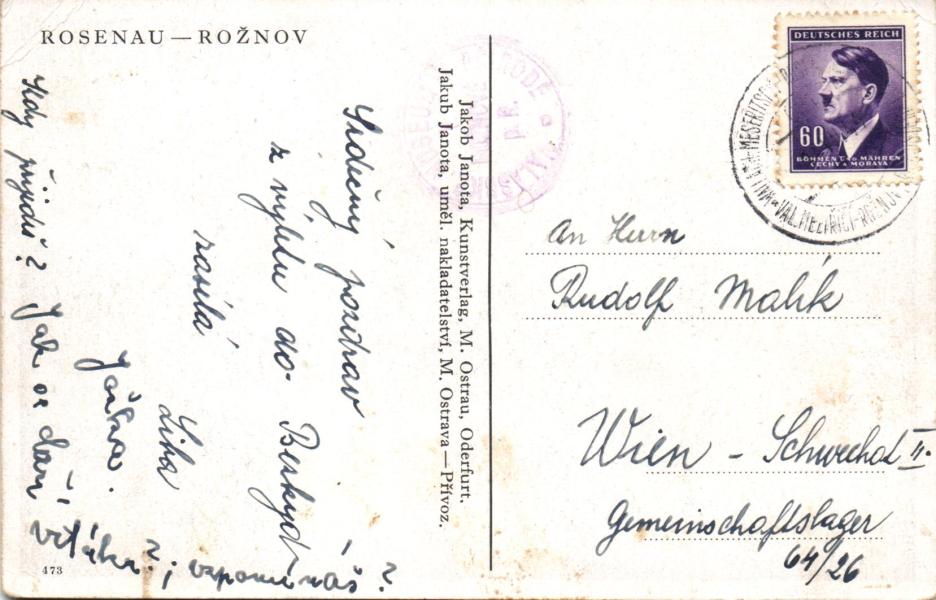 ROSENAU — ROŽNOV
Srdečný pozdrav
z výletu do Beskyd
zasílá
Liba
Jak se daří
Kdy přijdeš?
vzpomínáš?
473
Jakob Janota, Kunstverlag, M. Ostrau, Oderfurt.
Jakub Janota, uměl. nakladatelství, M. Ostrava—Přívoz.
DEUTSCHES REICH
60
BÖHMEN U. MÄHREN
ČECHY A MORAVA
An Herrn
Rudolf Malík
Wien - Schwechat II.
Gemeinschaftslager
64/26